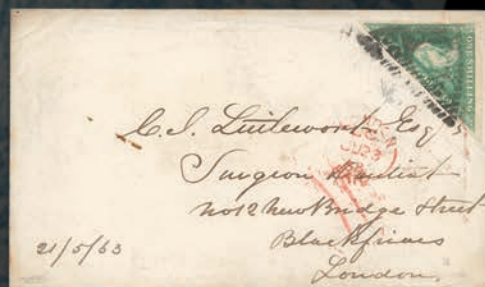 ONE SHILLING
C. J. Littlewort Esqre
Surgeon Dentist
No 12 New Bridge Street
Blackfriars
London.
21/5/63